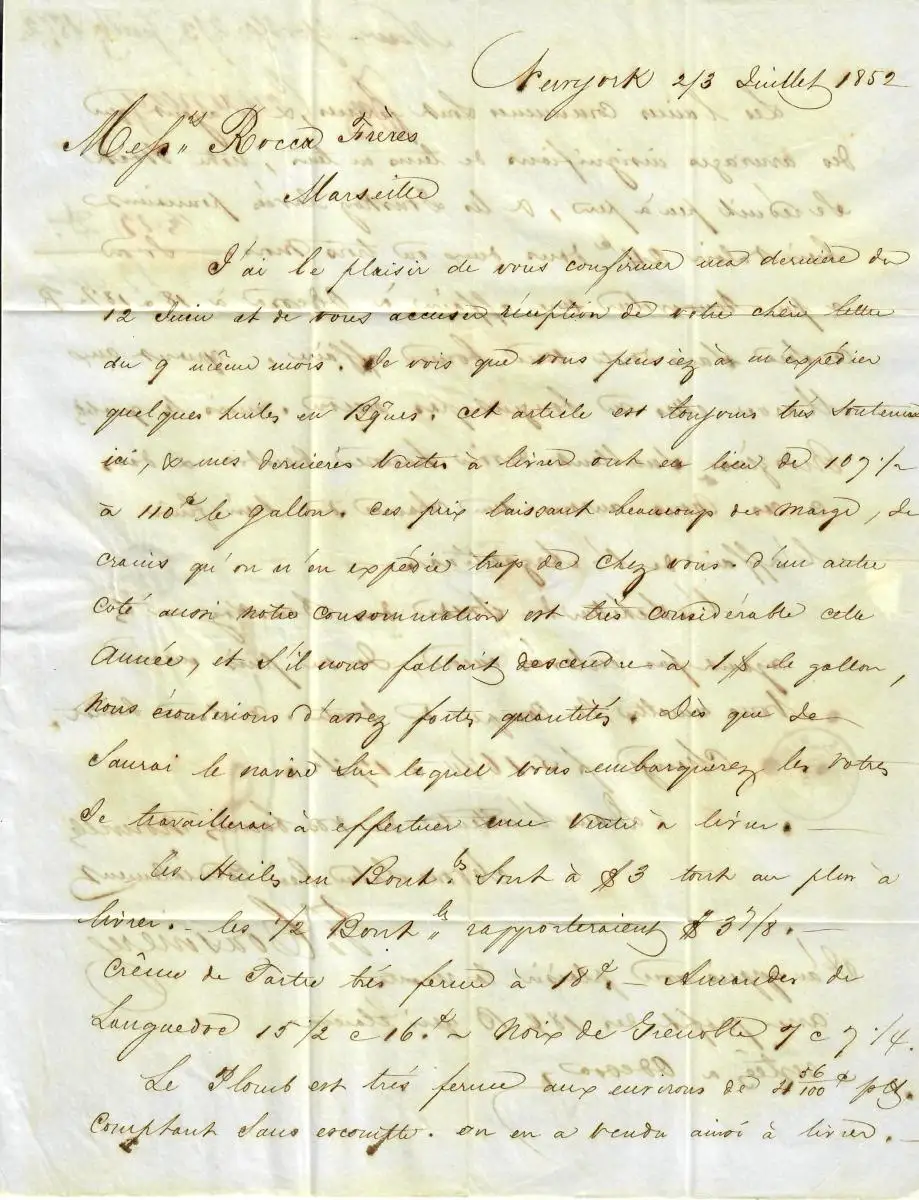 Newyork 2/3 Juillet 1852
Mess.rs Rocca Frères
Marseille
J'ai le plaisir de vous confirmer ma dernière du
12 Juin et de vous accuser réception de votre chère lettre
du 9 même mois. Je vois que vous pensiez à m'expédier
quelques huiles en Bques. cet article est toujours très soutenu
ici, & mes dernières ventes à livrer ont eu lieu de 109 1/2
à 110 c le gallon. ces prix laissant beaucoup de marge, je
crains qu'on n'en expédie trop de chez vous. d'un autre
coté aussi notre consommation est très considérable cette
Année, et s'il nous fallait descendre à 1 $ le gallon,
nous écoulerions d'assez fortes quantités. Dès que je
saurai le navire sur lequel vous embarquerez les votres
Je travaillerai à effectuer une vente à livrer. —
Les Huiles en Bout.les sont à $ 3 tout au plus à
livrer. — les 1/2 Bout.les rapporteraient $ 3 7/8. —
Crême de Tartre très ferme à 18 c. — Amandes de
Languedoc 15 1/2 c 16. c — Noix de Grenoble 7 c 7 1/4.
Le Plomb est très ferme aux environs de 4 56/100 $
comptant sans escompte. on en a vendu ainsi à livrer. —